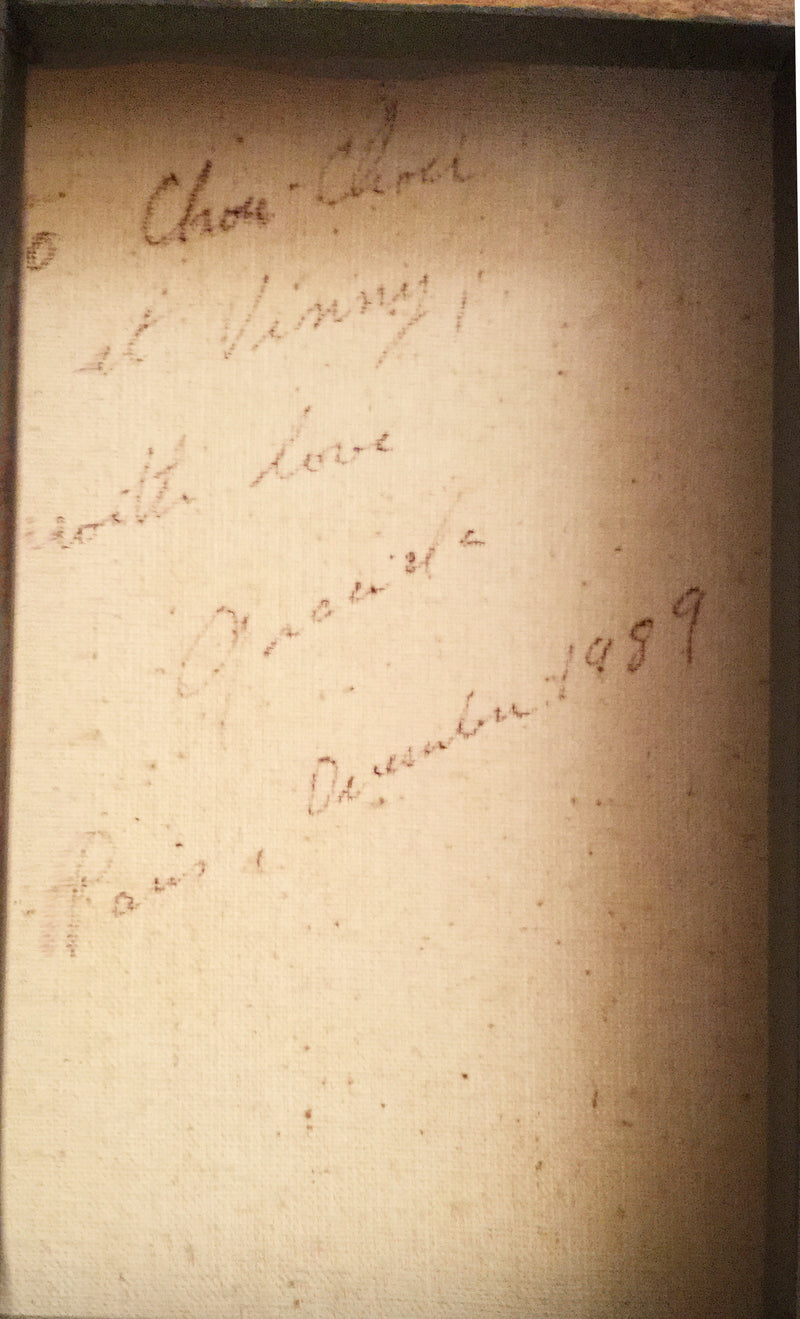 o Chou-Chou
et Vinny,
with love
Graciela
Paris, December 1989